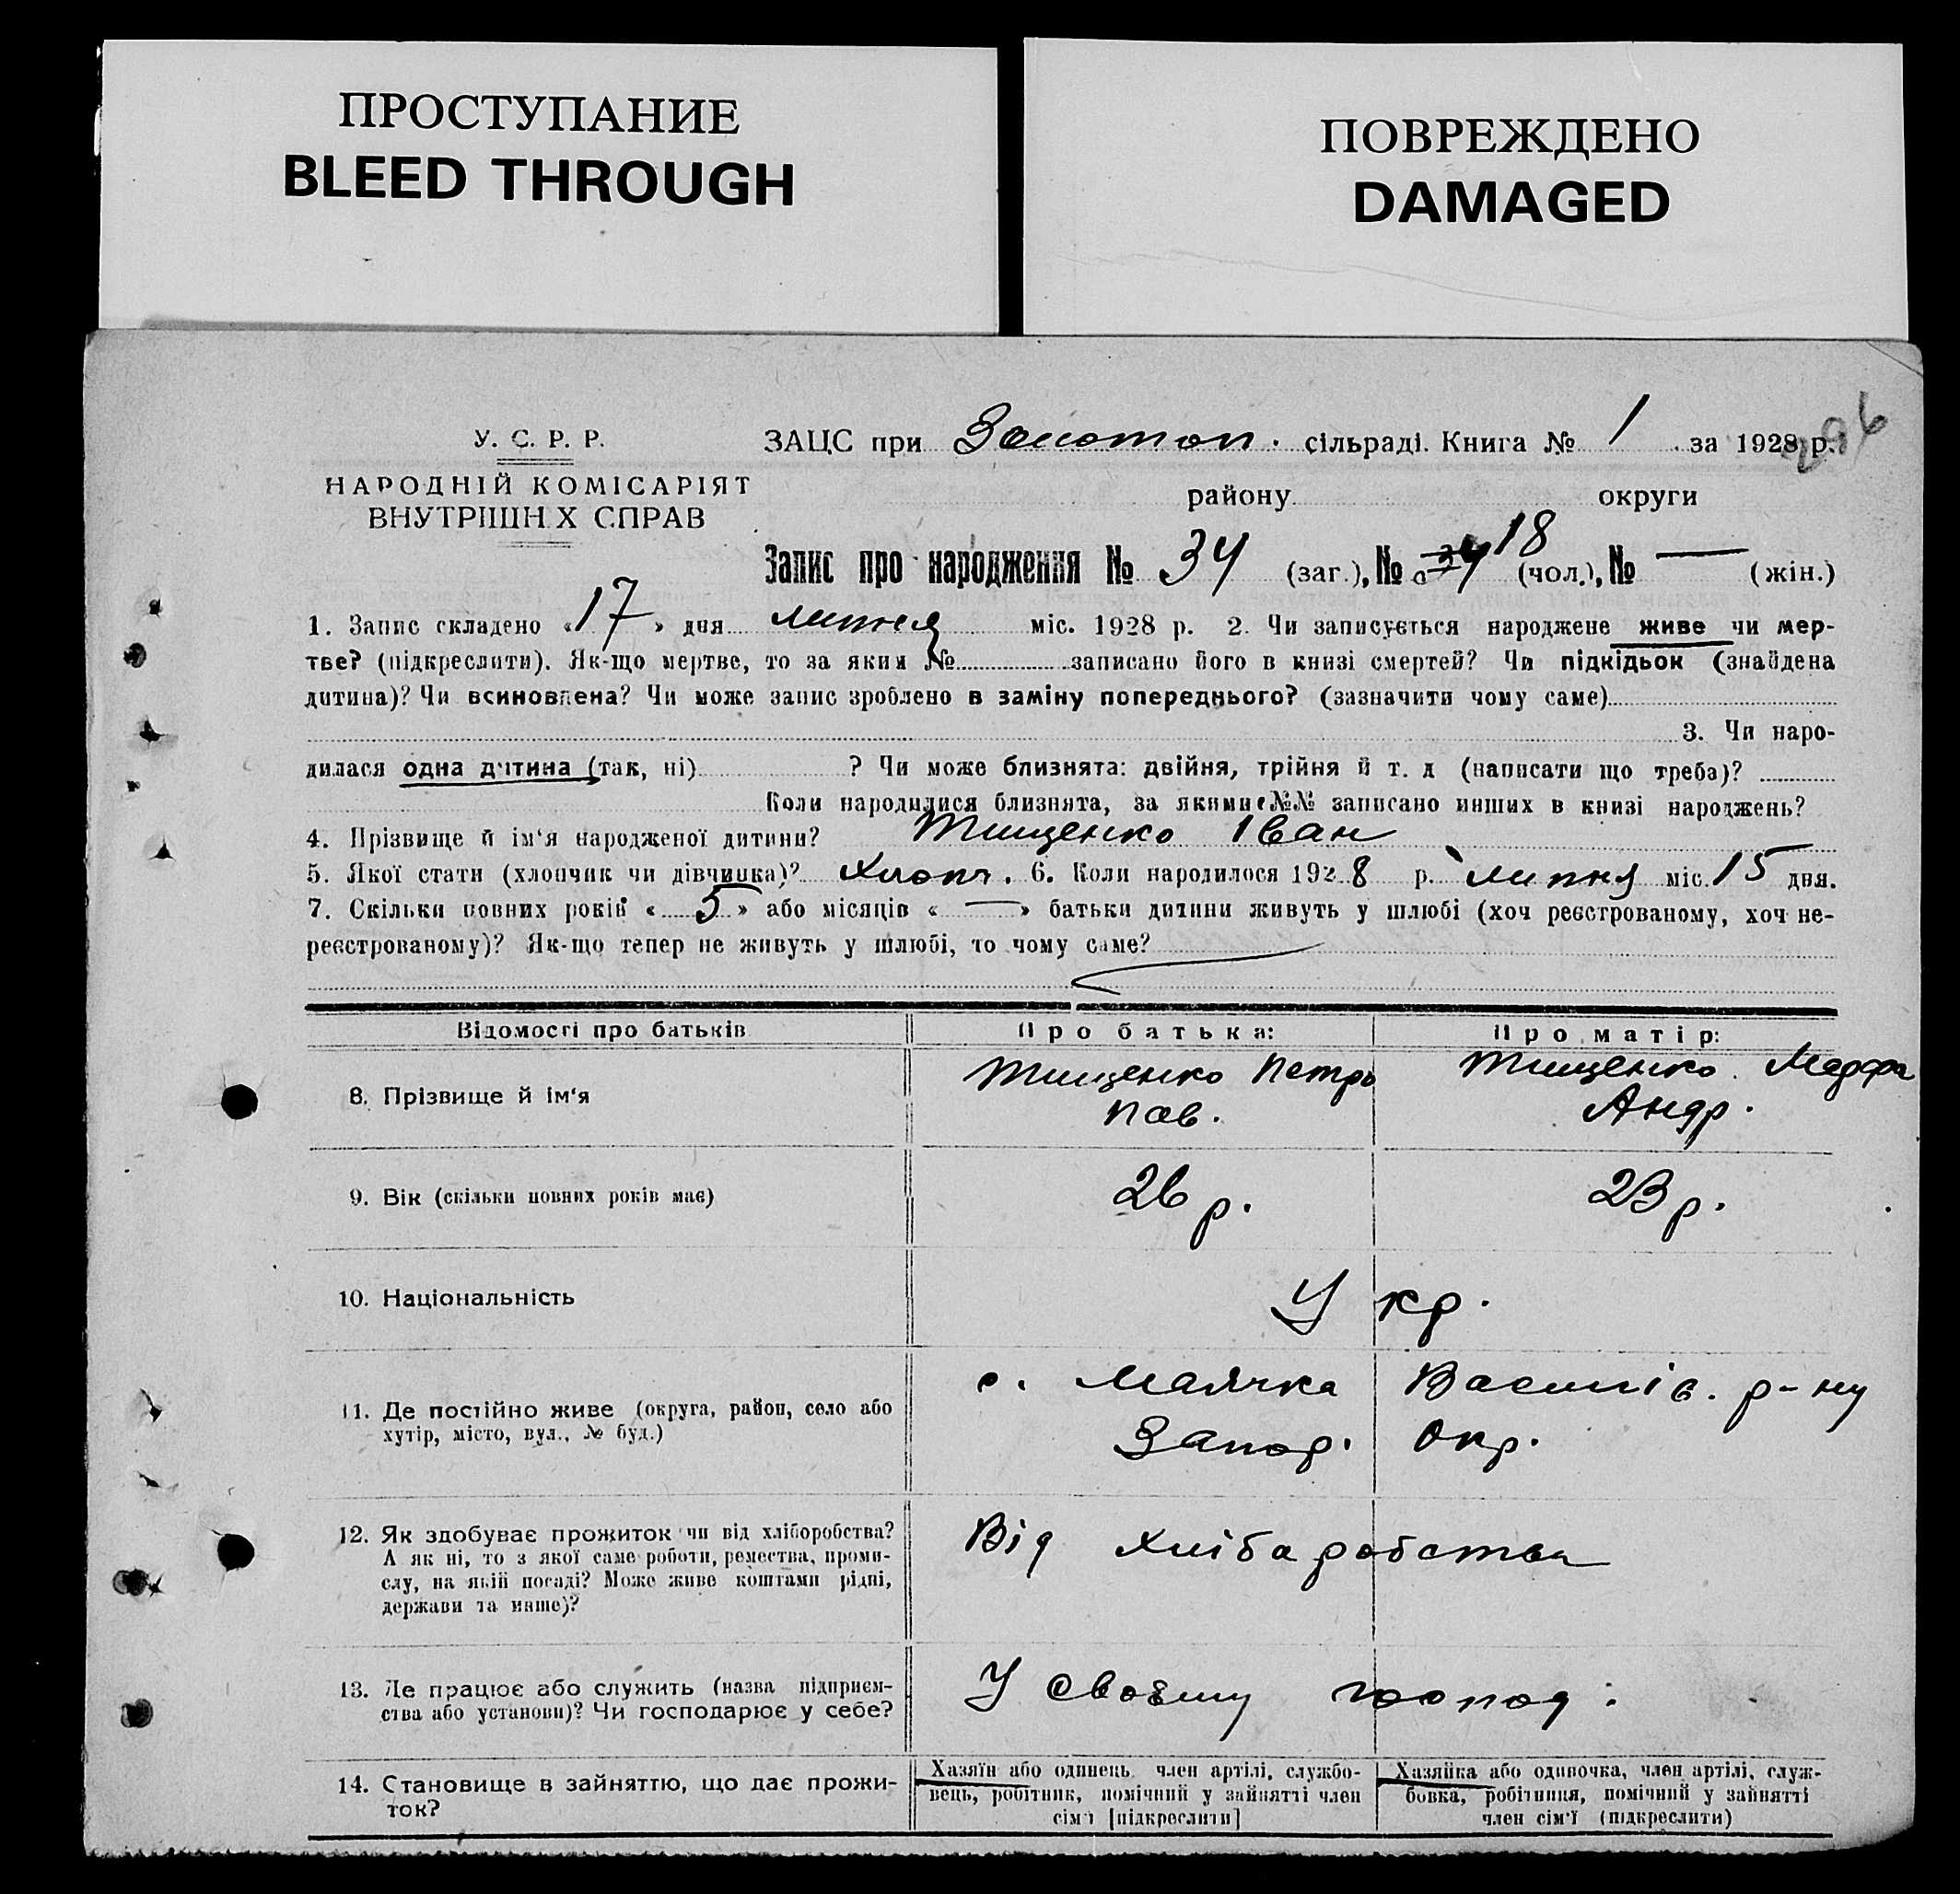 ПРОСТУПАНИЕ
BLEED THROUGH
ПОВРЕЖДЕНО
DAMAGED
У. С. Р. Р.
НАРОДНІЙ КОМІСАРІЯТ
ВНУТРІШН Х СПРАВ
ЗАЦС при Золотоп. сільраді. Книга № 1 за 1928 р.
району округи
Запис про народження № 34 (заг.), № 34 18 (чол.), № — (жін.)
1. Запис складено «17» дня липня міс. 1928 р. 2. Чи записується народжене живе чи мер-
тве? (підкреслити). Як-що мертве, то за яким № записано його в книзі смертей? Чи підкідьок (знайдена
дитина)? Чи всиновлена? Чи може запис зроблено в заміну попереднього? (зазначити чому саме)
3. Чи наро-
дилася одна дитина (так, ні) ? Чи може близнята: двійня, трійня й т. д (написати що треба)?
Коли народилися близнята, за якими №№ записано инших в книзі народжень?
4. Прізвище й ім'я народженої дитини? Тищенко Іван
5. Якої стати (хлопчик чи дівчинка)? Хлопч. 6. Коли народилося 1928 р. липня міс. 15 дня.
7. Скільки повних років «5» або місяців «—» батьки дитини живуть у шлюбі (хоч реєстрованому, хоч не-
реєстрованому)? Як-що тепер не живуть у шлюбі, то чому саме?
Відомості про батьків Про батька: Про матір:
8. Прізвище й ім'я Тищенко Петро Тищенко
Пав. Андр.
9. Вік (скільки повних років має) 26 р. 23 р.
10. Національність Укр.
11. Де постійно живе (округа, район, село або
хутір, місто, вул., № буд.)
с. Маячка Василів. р-ну
Запор. Окр.
12. Як здобуває прожиток чи від хліборобства?
А як ні, то з якої саме роботи, ремества, проми-
слу, на якій посаді? Може живе коштами рідні,
держави та инше)?
Від хліборобства
13. Де працює або служить (назва підприєм-
ства або установи)? Чи господарює у себе?
У своему господ.
14. Становище в зайняттю, що дає прожи-
ток?
Хазяїн або одинець член артілі, службо-
вець, робітник, помічний у зайнятті член
сім'ї [підкреслити]
Хазяйка або одиночка, член артілі, служ-
бовка, робітниця, помічний у зайнятті
член сім'ї (підкреслити)